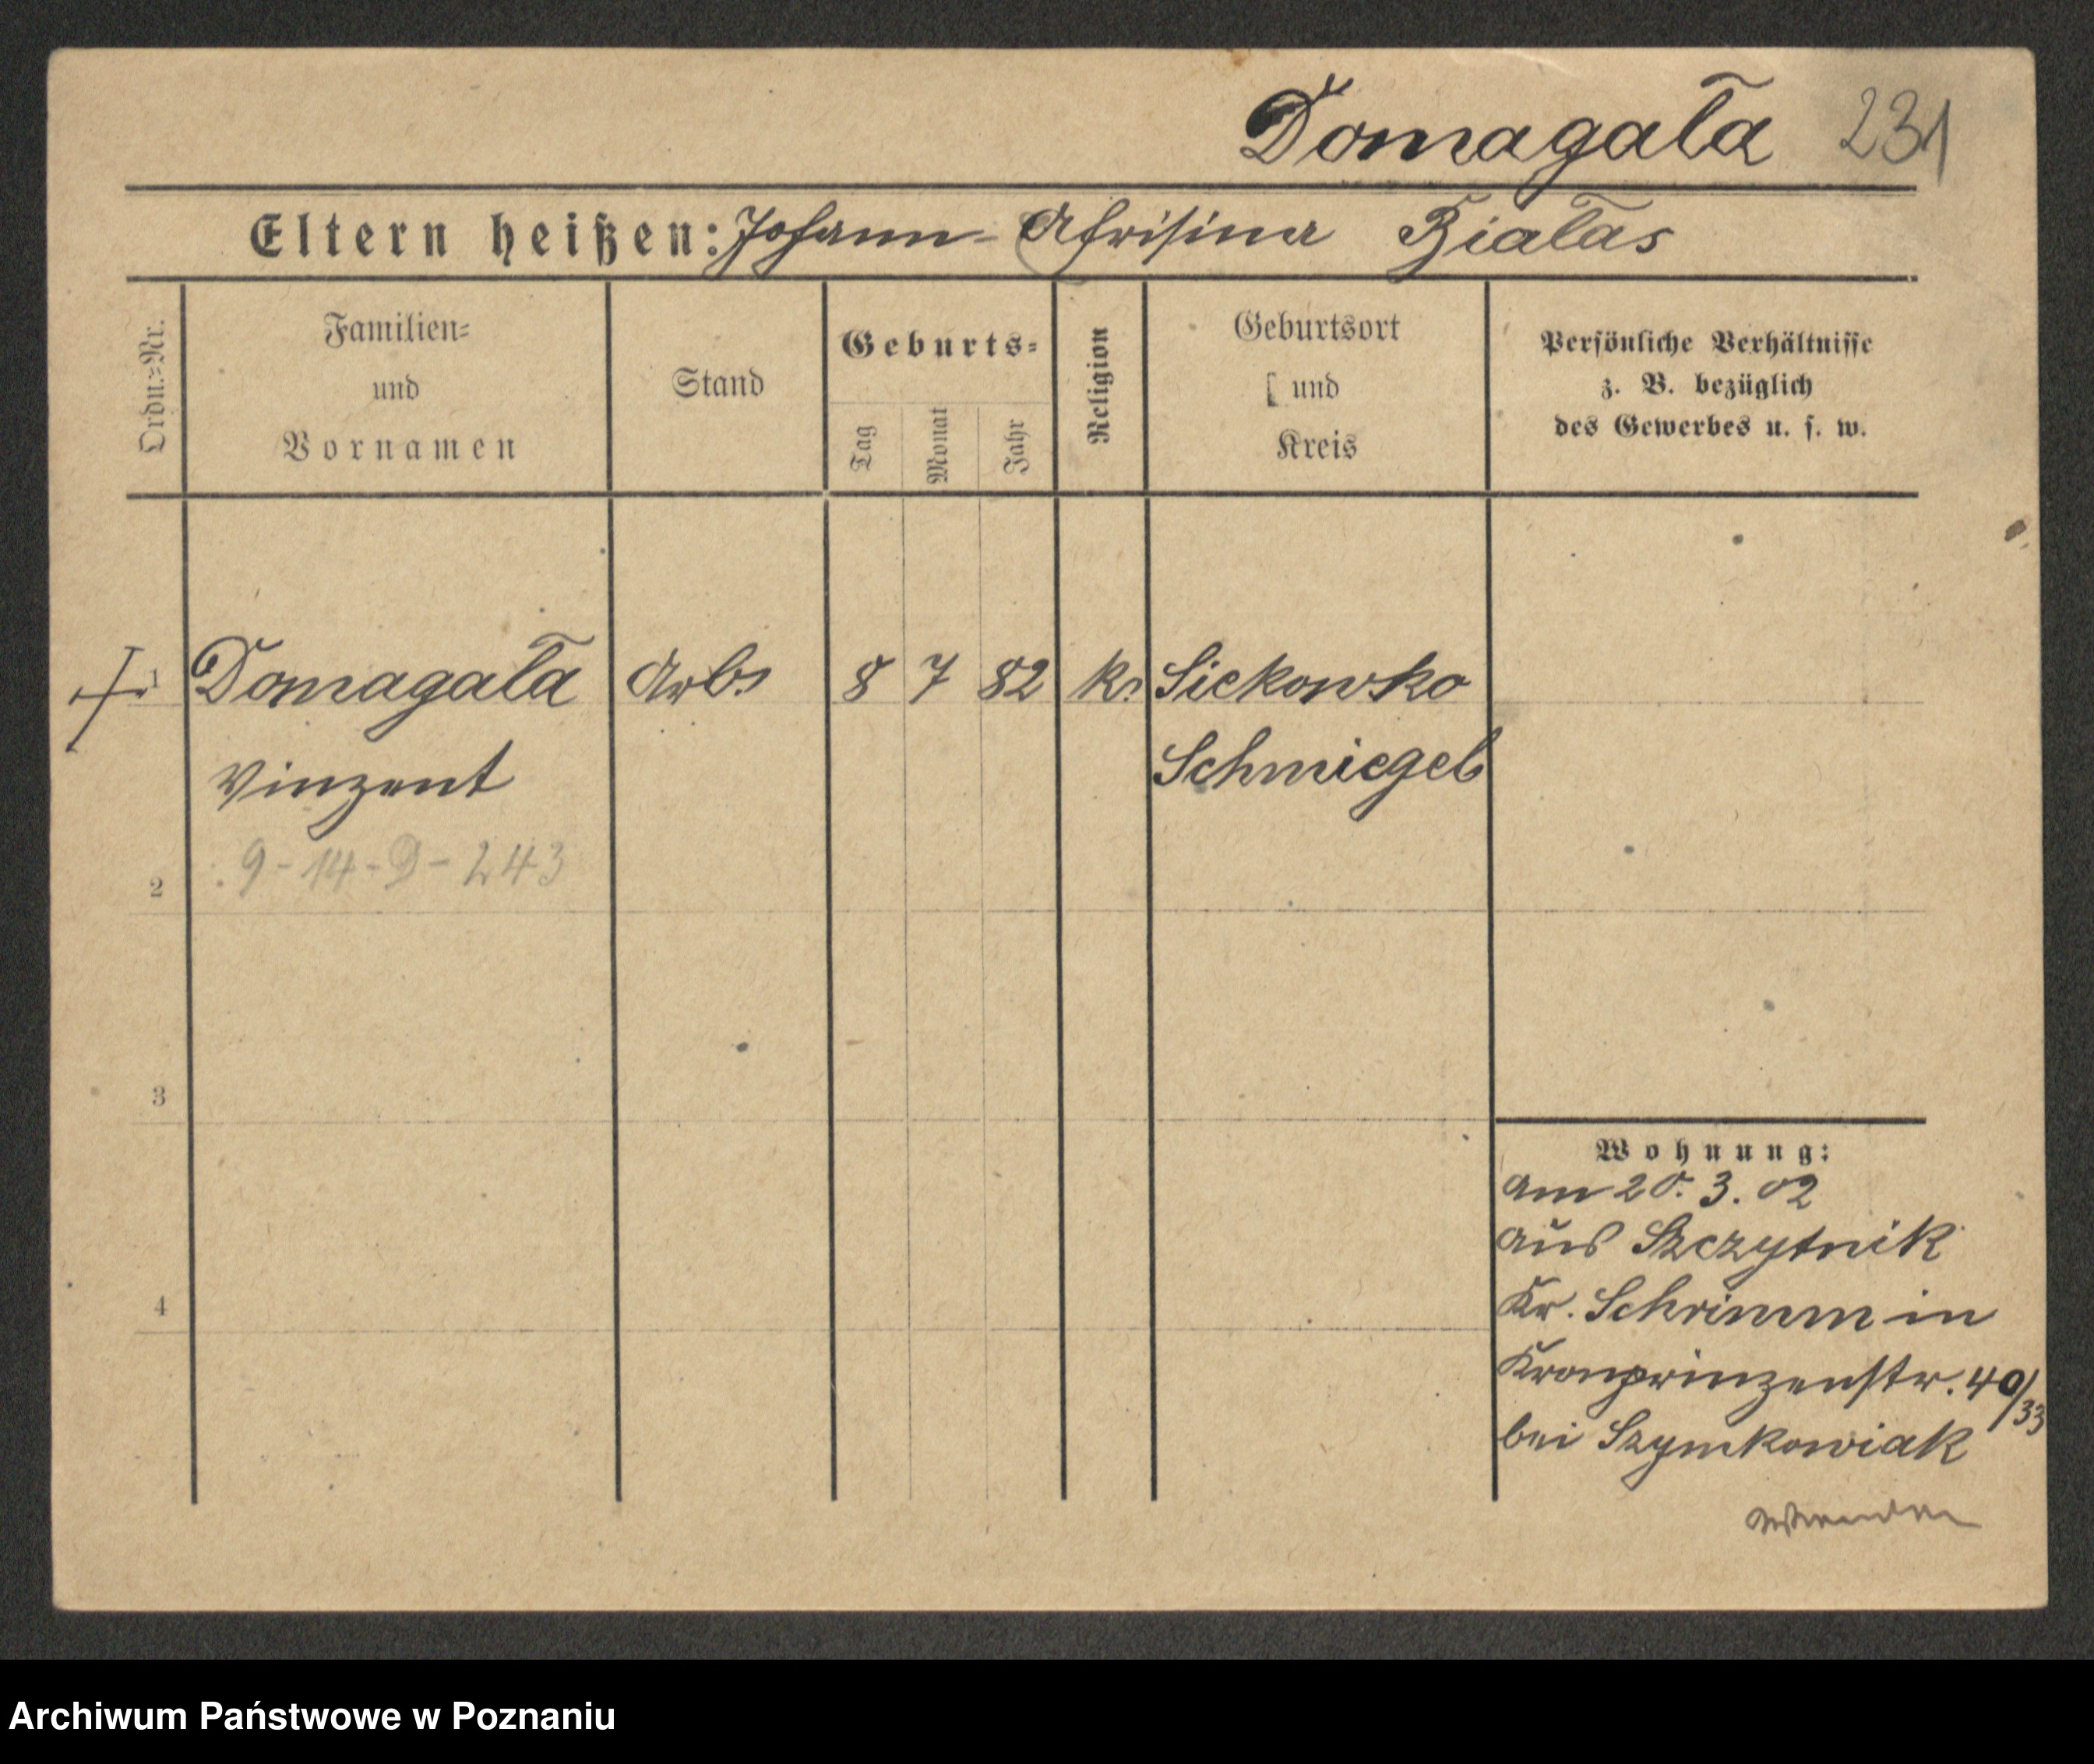 Domagała 231
Eltern heißen: Johann - Bialas
Ordn.=Nr.
Familien=
und
Vornamen
Stand
Geburts=
Tag
Monat
Jahr
Religion
Geburtsort
und
Kreis
Persönliche Verhältnisse
z. B. bezüglich
des Gewerbes u. s. w.
1 Domagała Arb. 8 7 82 k. Siekowko
Vinzent Schmiegel
9-14-D-243
2
3
4
Wohnung:
am 20. 3. 02
aus Szczytnik
Kr. Schrimm in
Kronprinzenstr. 40/33
bei Szymkowiak
Wenden
Archiwum Państwowe w Poznaniu